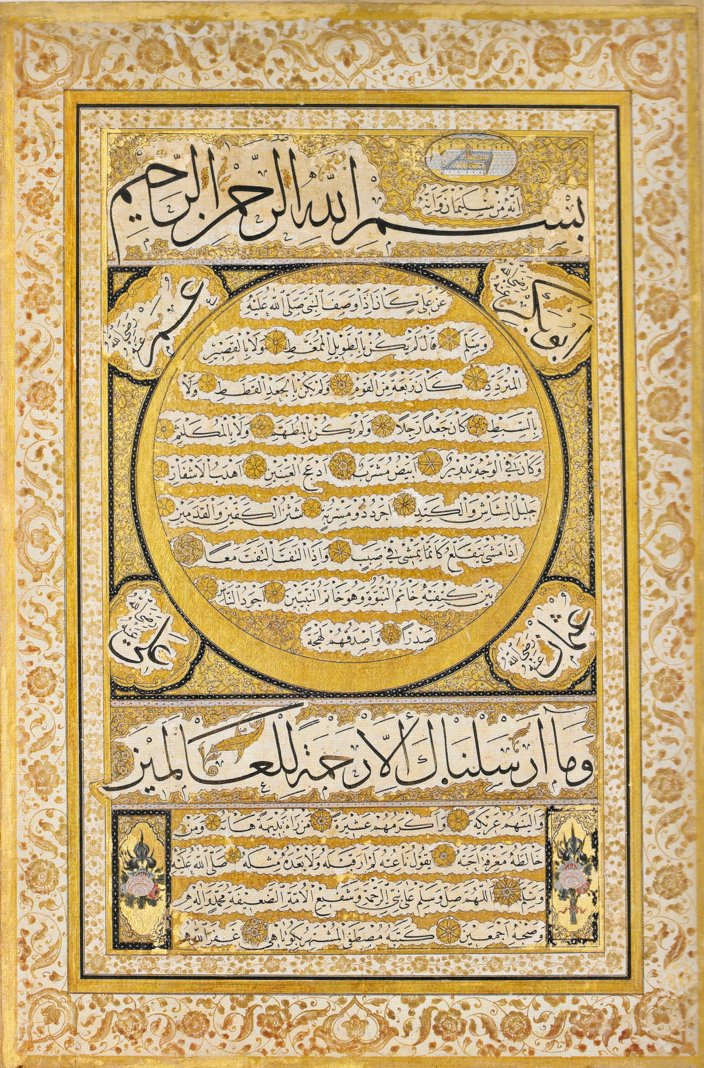 انه من سليمان وانه
بسم الله الرحمن الرحيم
ابو بكر رضي الله عنه
عمر رضي الله عنه
عن علي كان اذا وصف النبي صلى الله عليه
وسلم قال لم يكن بالطويل الممغط ولا بالقصير
المتردد كان ربعة من القوم ولم يكن بالجعد القطط ولا
بالسبط كان جعدا رجلا ولم يكن بالمطهم ولا بالمكلثم
وكان في الوجه تدوير ابيض مشرب ادعج العينين اهدب الاشفار
جليل المشاش والكتد اجرد ذو مسربة شثن الكفين والقدمين
اذا مشى يتقلع كانما يمشي في صبب واذا التفت التفت معا
بين كتفيه خاتم النبوة وهو خاتم النبيين اجود الناس
صدرا واصدقهم لهجة
عثمان رضي الله عنه
علي رضي الله عنه
وما ارسلناك الا رحمة للعالمين
والينهم عريكة واكرمهم عشيرة من راه بديهة هابه ومن
خالطه معرفة احبه يقول ناعته لم ار قبله ولا بعده مثله صلى الله عليه
وسلم اللهم صل وسلم على نبي الرحمة وشفيع الامة الضعيفة محمد واله
وصحبه اجمعين كتبه مصطفى الشهير غفر الله له